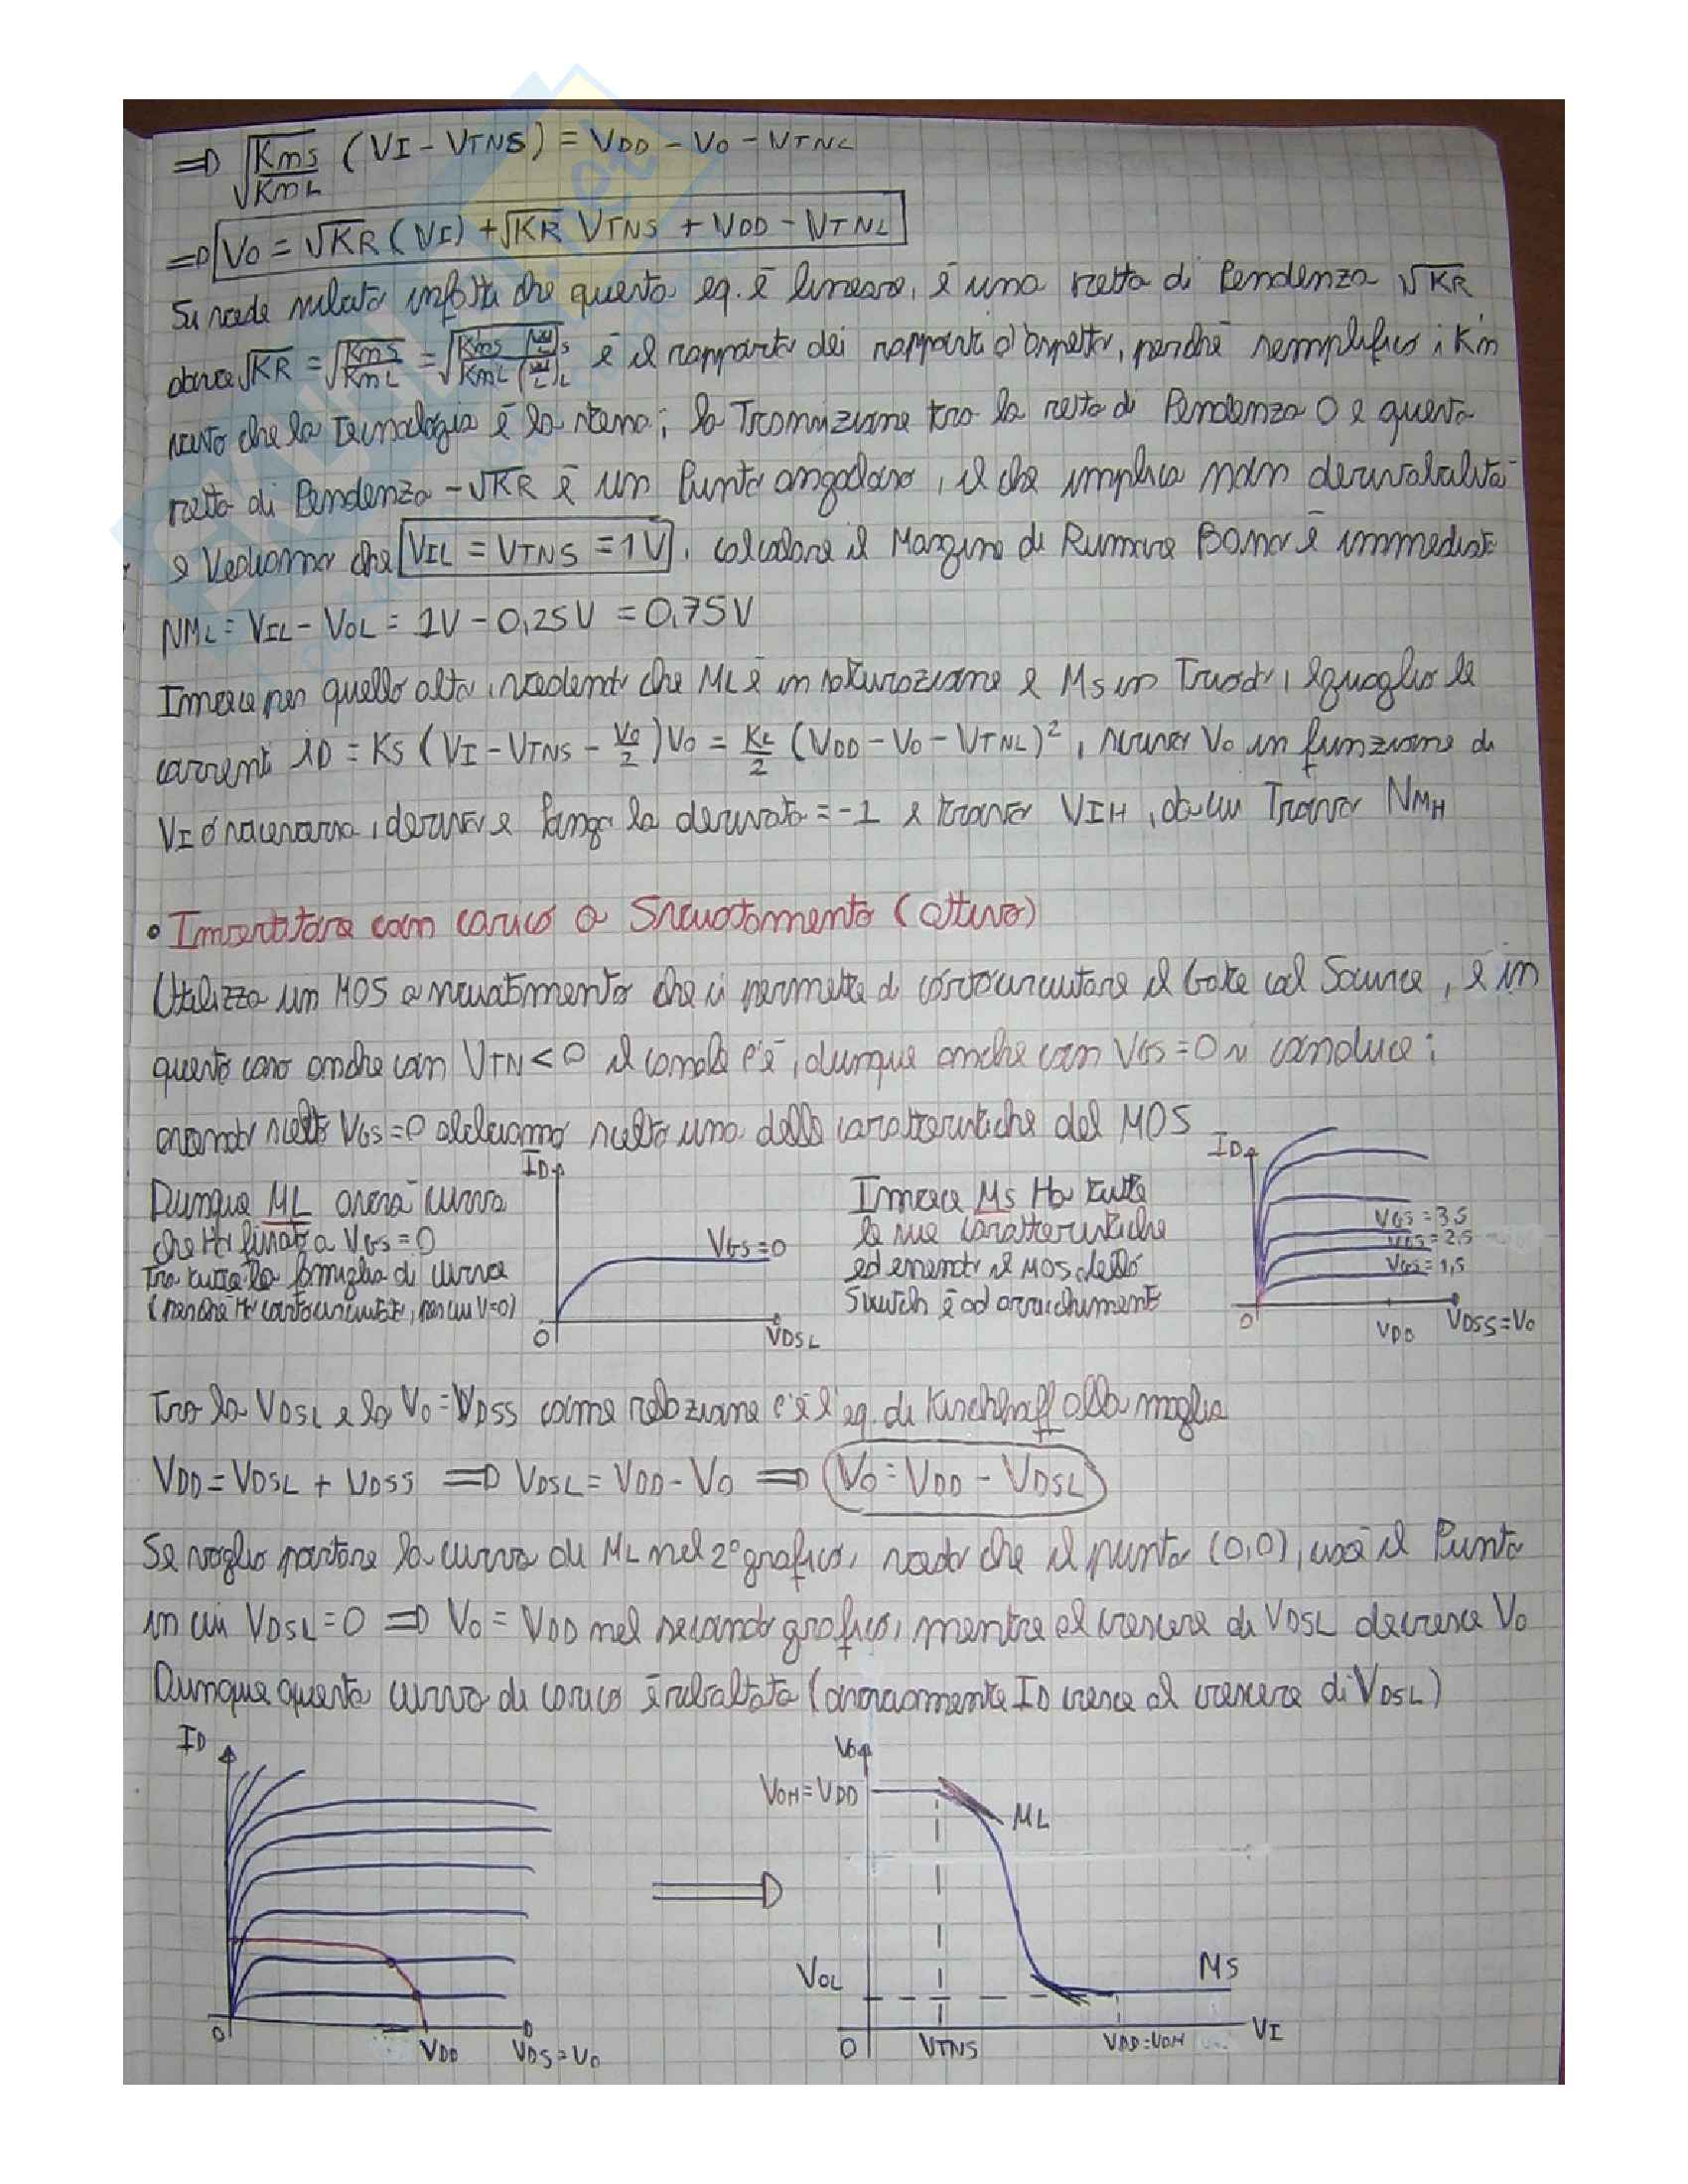 =D √(KmS/KmL) (VI - VTNS) = VDD - VO - VTNL
=D VO = √KR (VI) + √KR VTNS + VDD - VTNL
Si vede subito infatti che questa eq. è lineare, è una retta di Pendenza √KR
dove √KR = √(KmS/KmL) = √(KmS (W/L)S / KmL (W/L)L) è il rapporto dei rapporti d'aspetto, perché semplifico i Km
visto che la Tecnologia è la stessa; la Transizione tra la retta di Pendenza 0 e questa
retta di Pendenza -√KR è un Punto angoloso, il che implica non derivabilità
e Vediamo che VIL = VTNS = 1V, calcolare il Margine di Rumore Basso è immediato
NML = VIL - VOL = 1V - 0,25V = 0,75V
Invece per quello alto, vedendo che ML è in saturazione e MS in Triodo, eguaglio le
correnti iD = KS (VI - VTNS - VO/2) VO = KL/2 (VDD - VO - VTNL)², scrivo VO in funzione di
VI o viceversa, derivo e Pongo la derivata = -1 e trovo VIH, da cui Trovo NMH
• Invertitore con carico a Svuotamento (attivo)
Utilizzo un MOS a svuotamento che ci permette di cortocircuitare il Gate col Source, e in
questo caso anche con VTN < 0 il canale c'è, dunque anche con VGS = 0 si conduce;
avendo scelto VGS = 0 abbiamo scelto una delle caratteristiche del MOS
Dunque ML avrà curva
che Ho fissato a VGS = 0
Tra tutta la famiglia di curve
(perché Ho cortocircuitato, per cui V=0)
ID
VGS = 0
0
VDSL
Invece MS Ha tutte
le sue caratteristiche
ed essendo il MOS detto
Switch è ad arricchimento
ID
VGS = 3,5
VGS = 2,5
VGS = 1,5
0
VDD
VDSS = VO
Tra la VDSL e la VO = VDSS come relazione c'è l'eq. di Kirchhoff alla maglia
VDD = VDSL + VDSS =D VDSL = VDD - VO =D VO = VDD - VDSL
Se voglio portare la curva di ML nel 2° grafico, vedo che il punto (0,0), cioè il Punto
in cui VDSL = 0 =D VO = VDD nel secondo grafico, mentre al crescere di VDSL decresce VO
Dunque questa curva di carico è ribaltata (ovviamente ID cresce al crescere di VDSL)
ID
0
VDD
VDS = VO
VO
VOH = VDD
ML
VOL
MS
0
VTNS
VDD = VOH
VI